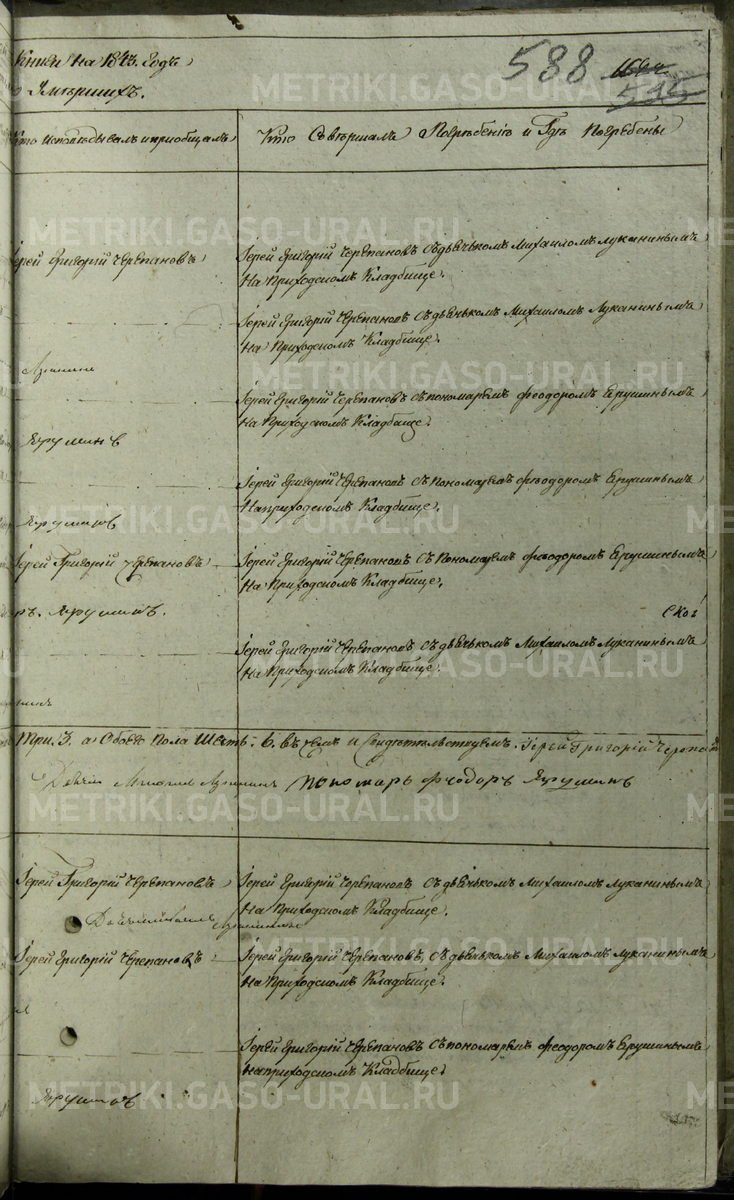 Книги на 1843. Годъ
588
О Умершихъ.
Кто Исповѣдывалъ и приобщалъ
Кто Совершалъ Погребенiе и Гдѣ Погребены
Iерей Григорiй Черепановъ
Iерей Григорiй Черепановъ Съ дьячькомъ Михаиломъ Луканинымъ
На Приходскомъ Кладбище.
Iерей Григорiй Черепановъ Съ дьячькомъ Михаиломъ Луканинымъ
На Приходскомъ Кладбище.
Iерей Григорiй Черепановъ Съ пономаремъ Феодоромъ Ерушинымъ
На Приходскомъ Кладбище.
Ярушинъ
Iерей Григорiй Черепановъ Съ Пономаремъ Феодоромъ Ерушинымъ
На приходскомъ Кладбище.
Ярушинъ
Iерей Григорiй Черепановъ
Iерей Григорiй Черепановъ Съ Пономаремъ Феодоромъ Ерушинымъ
На Приходскомъ Кладбище.
ръ. Ярушинъ.
Iерей Григорiй Черепановъ Съ дьячькомъ Михаиломъ Луканинымъ
На Приходскомъ Кладбище.
Три. 3. а Обоего Пола Шесть. 6. въ чемъ и Свидѣтельствуемъ. Iерей Григорiй Черепановъ
Дьячекъ Михаилъ Луканинъ Пономарь Феодоръ Ярушинъ
Iерей Григорiй Черепановъ
Iерей Григорiй Черепановъ Съ дьячькомъ Михаиломъ Луканинымъ
На Приходскомъ Кладбище.
Iерей Григорiй Черепановъ
Iерей Григорiй Черепановъ, Съ дьячькомъ Михаиломъ Луканинымъ
На Приходскомъ Кладбище.
Iерей Григорiй Черепановъ Съ пономаремъ Феодоромъ Ерушинымъ
На приходскомъ Кладбище.
Ярушинъ
METRIKI.GASO-URAL.RU